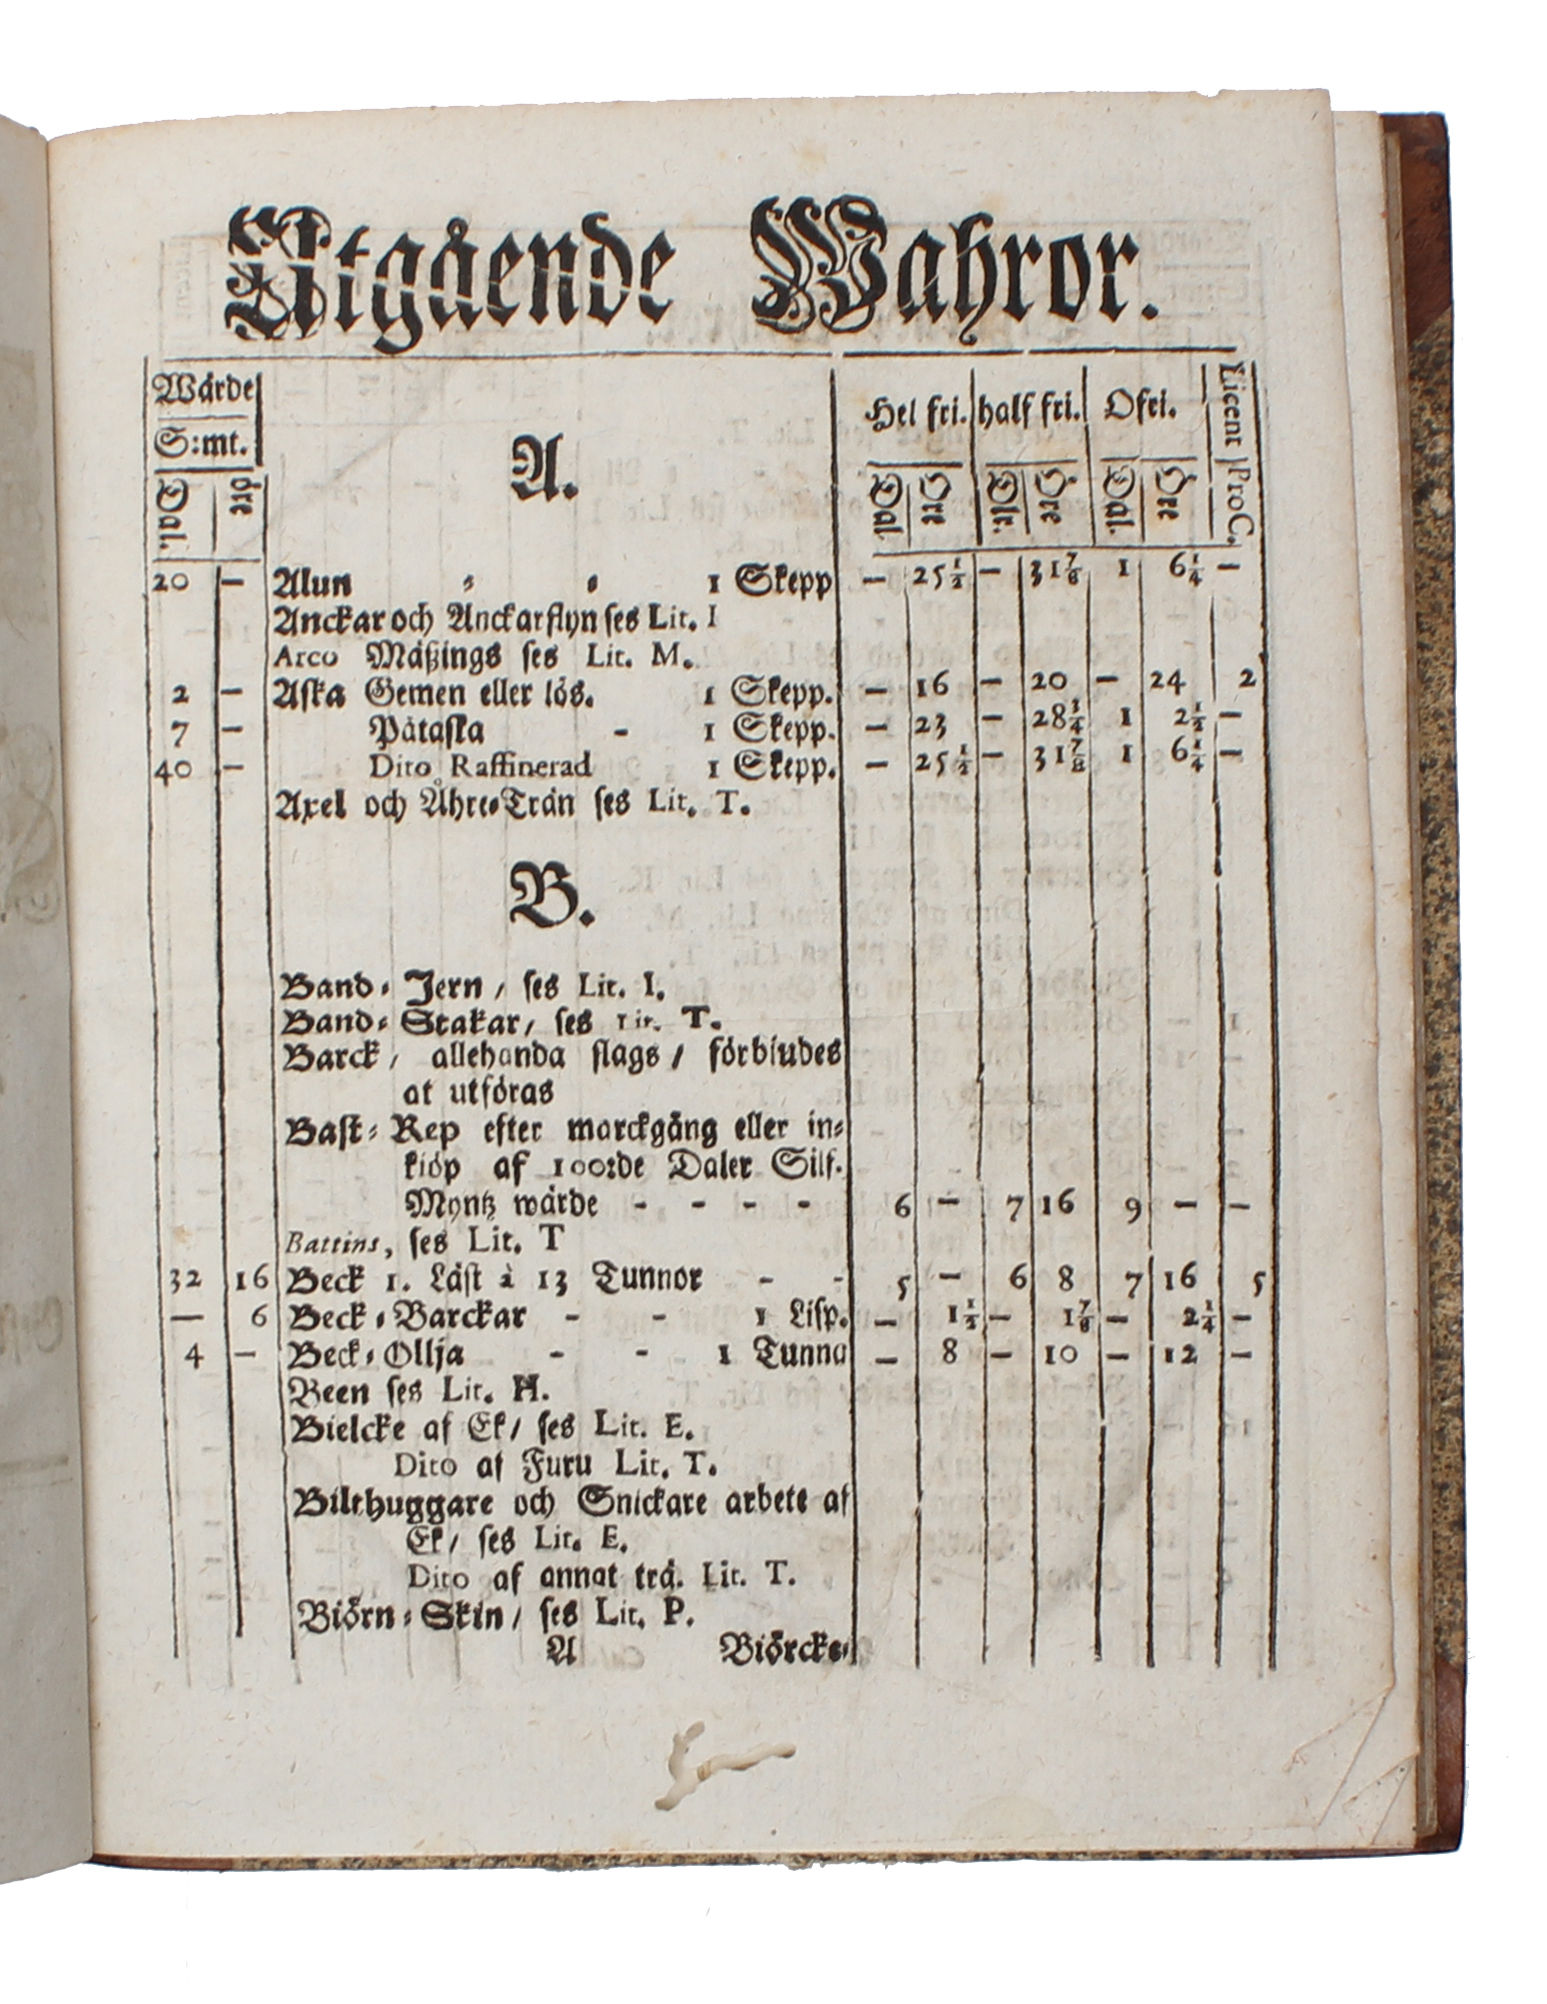 Utgående Wahror.
Wärde Hel fri. half fri. Ofri. Licent
S:mt. A.
Dal. öre Dal. Öre Dlr. Öre Dal. Öre ProC.
20 — Alun 1 Skepp — 25 1/2 — 31 7/8 1 6 1/4 —
Anckar och Anckarflyn ses Lit. I
Arco Mäßings ses Lit. M.
2 — Aska Gemen eller lös. 1 Skepp. — 16 — 20 — 24 2
7 — Pätaska - 1 Skepp. — 23 — 28 3/4 1 2 1/2 —
40 — Dito Raffinerad 1 Skepp. — 25 1/2 — 31 7/8 1 6 1/4 —
Axel och Åhre-Trän ses Lit. T.
B.
Band-Jern / ses Lit. I.
Band-Stakar / ses Lit. T.
Barck / allehanda slags / förbiudes
at utföras
Bast-Rep efter marckgång eller in-
kiöp af 100:de Daler Silf.
Myntz wärde - - - - 6 — 7 16 9 — —
Battins, ses Lit. T
32 16 Beck 1. Läst à 13 Tunnor - - 5 — 6 8 7 16 5
— 6 Beck-Barckar - - 1 Lisp. — 1 1/2 — 1 7/8 — 2 1/4 —
4 — Beck-Ollja - - 1 Tunna — 8 — 10 — 12 —
Been ses Lit. H.
Bielcke af Ek / ses Lit. E.
Dito af Furu Lit. T.
Bilthuggare och Snickare arbete af
Ek / ses Lit. E.
Dito af annat trä. Lit. T.
Biörn-Skin / ses Lit. P.
A Biörcke-